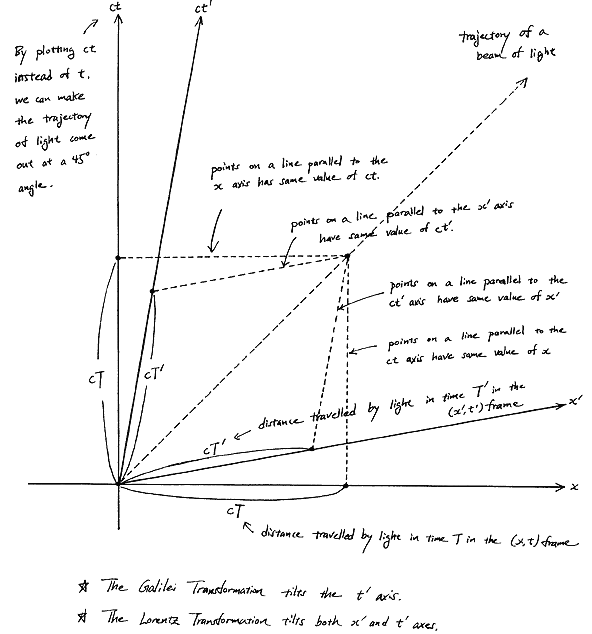 ct
ct'
By plotting ct
instead of t,
we can make
the trajectory
of light come
out at a 45°
angle.
trajectory of a
beam of light
points on a line parallel to the
x axis has same value of ct.
points on a line parallel to the x' axis
have same value of ct'.
points on a line parallel to the
ct' axis have same value of x'
points on a line parallel to the
ct axis have same value of x
cT
cT'
cT'
distance travelled by light in time T' in the
(x',t') frame
x'
x
cT
distance travelled by light in time T in the (x,t) frame
☆ The Galilei Transformation tilts the t' axis.
☆ The Lorentz Transformation tilts both x' and t' axes.